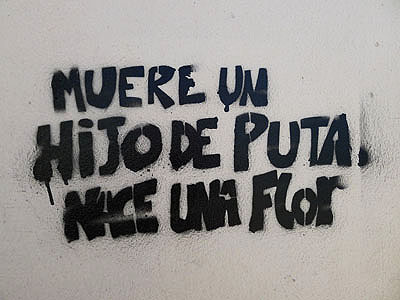 MUERE UN
HIJO DE PUTA.
NACE UNA FLOR